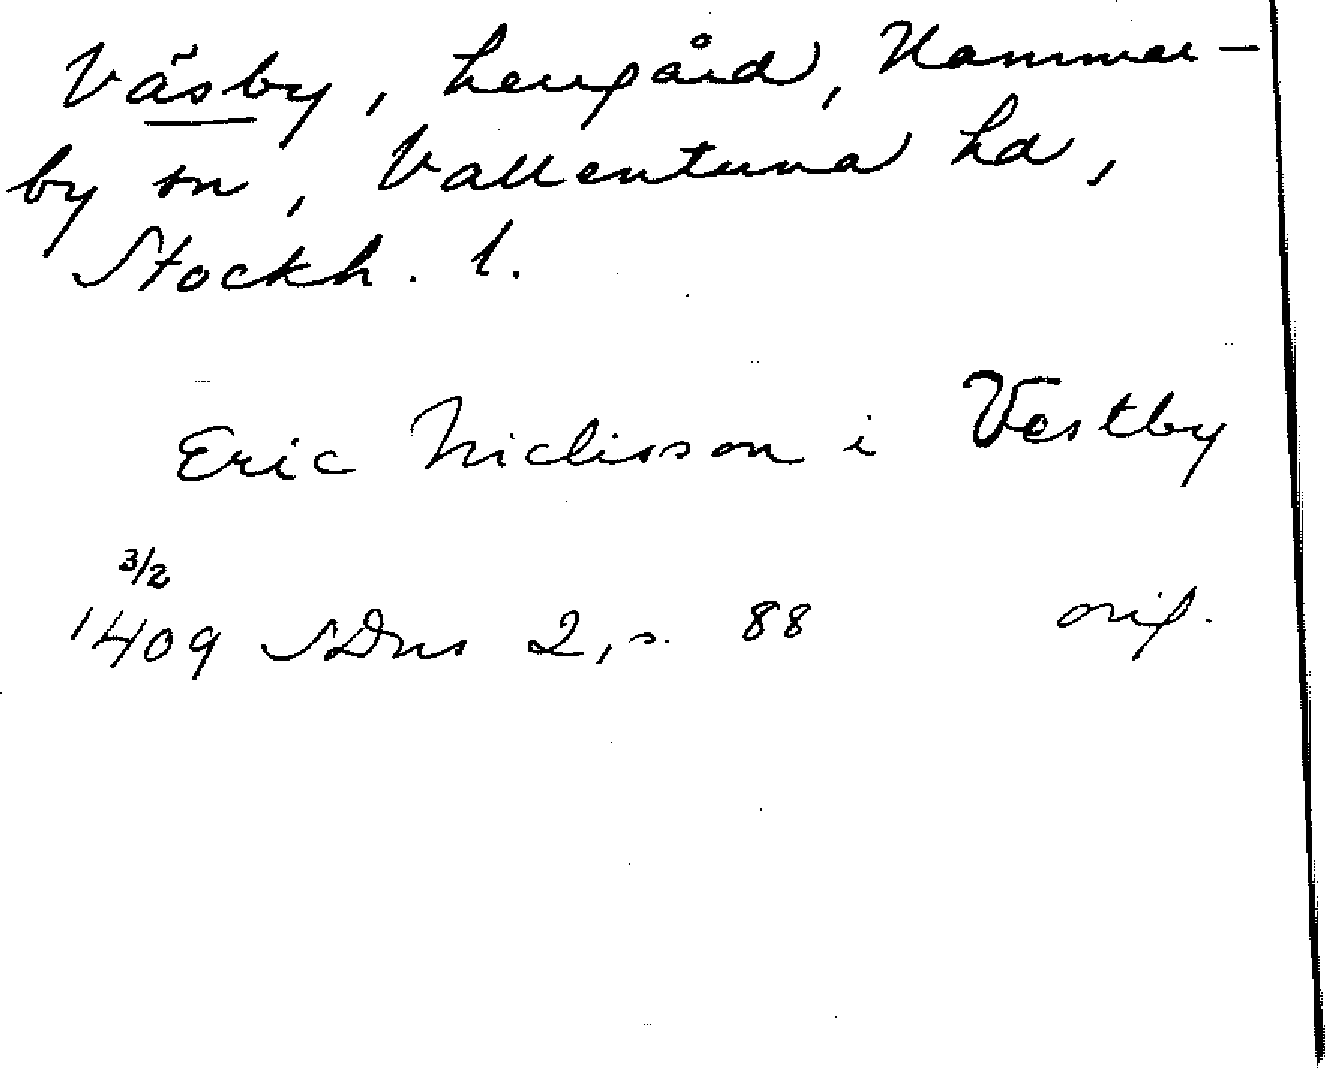 Väsby, herrgård, Hammar-
by sn, Vallentuna hd,
Stockh. l.
Eric Niclisson i Vestby
3/2
1409 SDns 2, s. 88 orig.